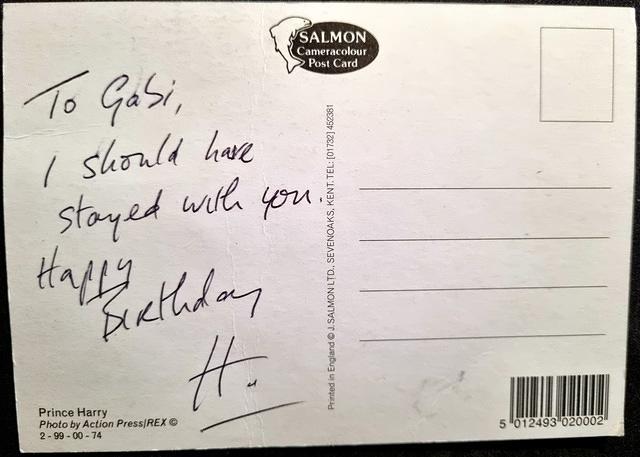 SALMON
Cameracolour
Post Card
To Gabi,
I should have
stayed with you.
Happy
Birthday
H..
Printed in England © J. SALMON LTD., SEVENOAKS, KENT. TEL: [01732] 452381
Prince Harry
Photo by Action Press/REX ©
2 - 99 - 00 - 74
5 012493 020002